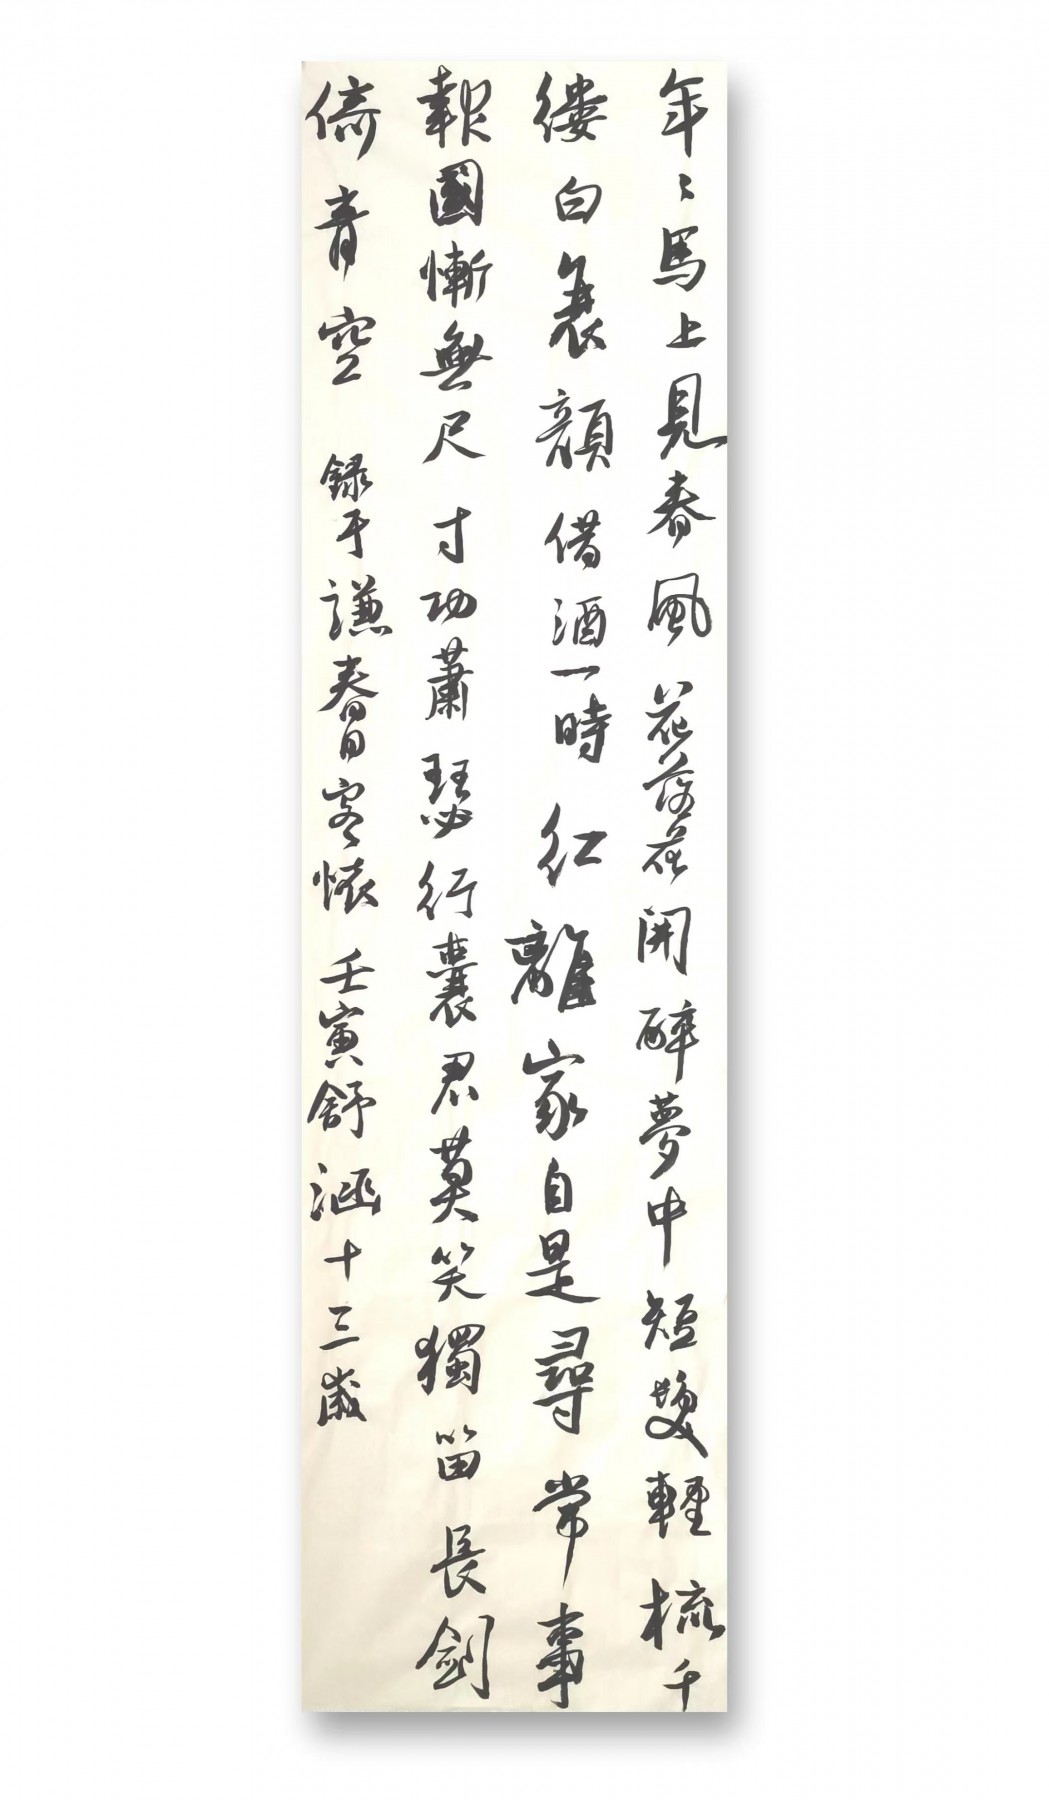 年々馬上見春風花落花開醉夢中短髮輕梳千
縷白衰顏借酒一時紅離家自是尋常事
報國慚無尺寸功蕭瑟行囊君莫笑獨笛長劍
倚青空 録于謙春日客懷壬寅舒涵十三歲